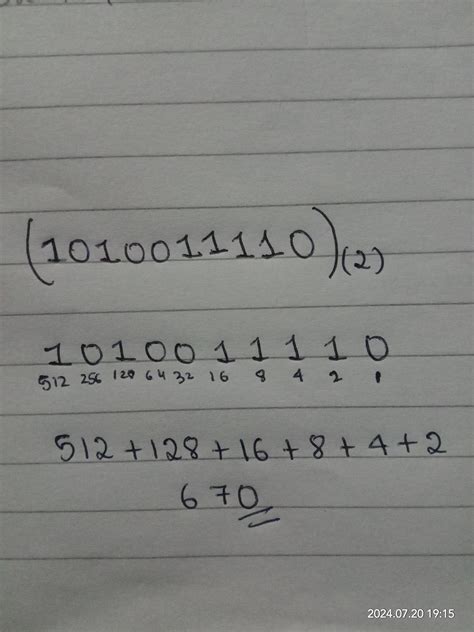 (1010011110)(2)
1 0 1 0 0 1 1 1 1 0
512 256 128 64 32 16 8 4 2 1
512 + 128 + 16 + 8 + 4 + 2
670
2024.07.20 19:15